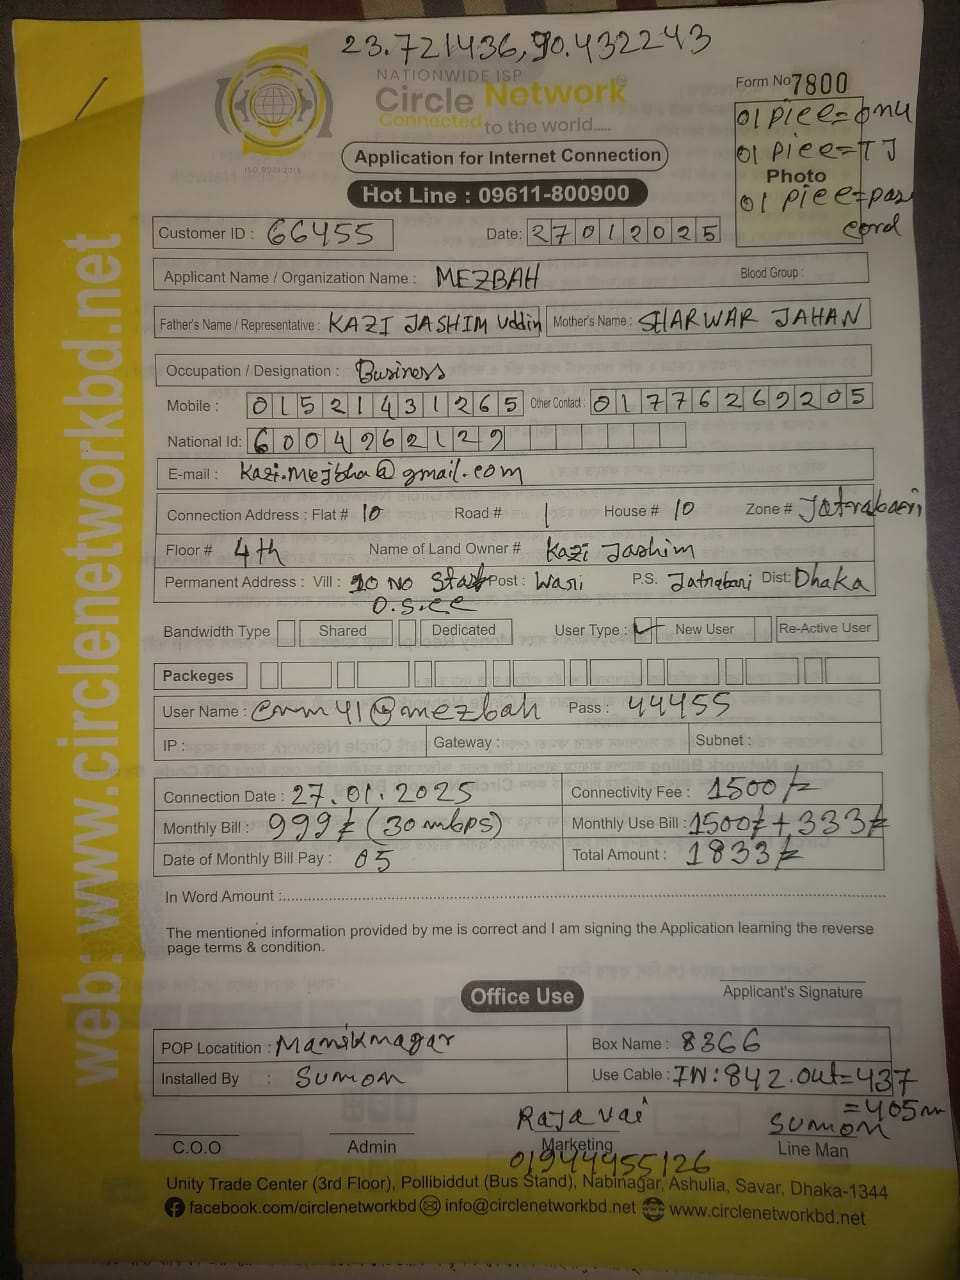 23.721436, 90.432243
NATIONWIDE ISP
Circle Network
Connected to the world.....
ISO 9001:2015
Form No 7800
01 piee=onu
01 piee=TJ
Photo
01 piee=pas
cord
Application for Internet Connection
Hot Line : 09611-800900
Customer ID : 66455 Date: 27012025
Applicant Name / Organization Name : MEZBAH Blood Group :
Father's Name / Representative : KAZI JASHIM Uddin Mother's Name : SHARWAR JAHAN
Occupation / Designation : Business
Mobile : 01521431265 Other Contact : 01776269205
National Id: 6004962129
E-mail : kazi.mejbha@gmail.com
Connection Address : Flat # 10 Road # 1 House # 10 Zone # Jatrabari
Floor # 4th Name of Land Owner # Kazi Jashim
Permanent Address : Vill : 10 NO Post : Wari P.S. Jatrabari Dist: Dhaka
O.S.CC
Bandwidth Type Shared Dedicated User Type : New User Re-Active User
Packeges
User Name : cnm41@mezbah Pass : 44455
IP : Gateway : Subnet :
Connection Date : 27.01.2025 Connectivity Fee : 1500/=
Monthly Bill : 999/= (30 mbps) Monthly Use Bill : 1500/= + 333/=
Date of Monthly Bill Pay : 05 Total Amount : 1833/=
In Word Amount :
The mentioned information provided by me is correct and I am signing the Application learning the reverse
page terms & condition.
Applicant's Signature
Office Use
POP Locatition : Maniknagar Box Name : 8366
Installed By : Sumon Use Cable : IN:842.out=437
=405m
Raja vai Sumon
C.O.O Admin Marketing Line Man
01944955126
Unity Trade Center (3rd Floor), Pollibiddut (Bus Stand), Nabinagar, Ashulia, Savar, Dhaka-1344
facebook.com/circlenetworkbd info@circlenetworkbd.net www.circlenetworkbd.net
web:www.circlenetworkbd.net